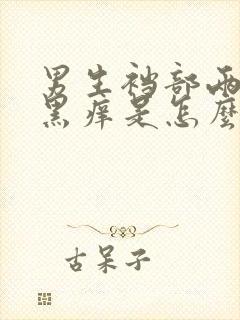 男生裆部两
黑痒是怎麼
古呆子